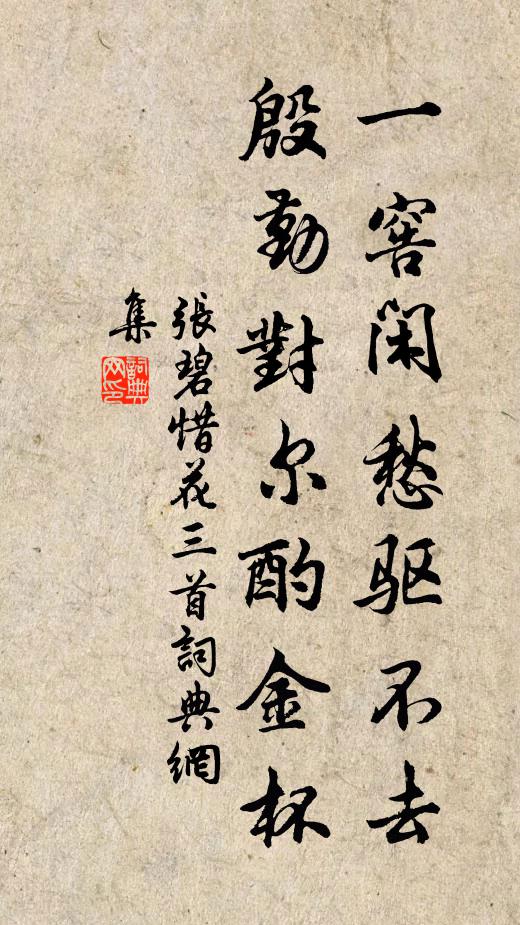 一窖闲愁驱不去
殷勤對尔酌金杯
張碧惜花三首詞典網
集
詞典
网印